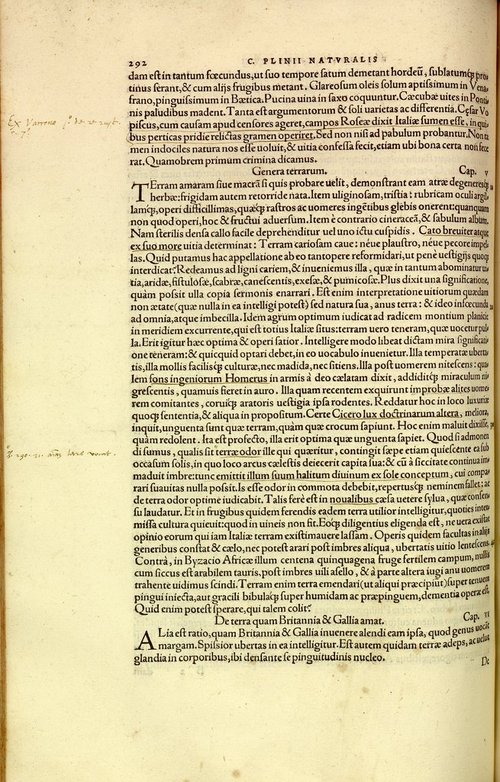 292 C. PLINII NATVRALIS
dam est in tantum fœcundus, ut suo tempore satum demetant hordeū, sublatumq; pro
tinus serant, & cum alijs frugibus metant. Glareosum oleis solum aptissimum in Vena
frano, pinguissimum in Bætica. Pucina uina in saxo coquuntur. Cæcubæ uites in Pontie
nis paludibus madent. Tanta est argumentorum & soli uarietas ac differentia. Cæsar Vo
piscus, cum causam apud censores ageret, campos Roseæ dixit Italiæ sumen esse, in qui
bus perticas pridie relictas gramen operiret. Sed non nisi ad pabulum probantur. Non ta
men indociles natura nos esse uoluit, & uitia confessa fecit, etiam ubi bona certa non fece
rat. Quamobrem primum crimina dicamus.
Genera terrarum. Cap. V
TErram amaram siue macrā si quis probare uelit, demonstrant eam atræ degeneresq;
herbæ: frigidam autem retorride nata. Item uliginosam, tristia: rubricam oculi argil
lamq;, operi difficillimas, quæq; rastros ac uomeres ingētibus glebis onerent: quanquam
non quod operi, hoc & fructui aduersum. Item è contrario cineraceā, & sabulum album.
Nam sterilis densa callo facile deprehenditur uel uno ictu cuspidis. Cato breuiter atque
ex suo more uitia determinat: Terram cariosam caue: néue plaustro, néue pecore impel
las. Quid putamus hac appellatione ab eo tantopere reformidari, ut penè uestigijs quoq;
interdicat? Redeamus ad ligni cariem, & inueniemus illa, quæ in tantum abominatur ui
tia, aridæ, fistulosæ, scabræ, canescentis, exesæ, & pumicosæ. Plus dixit una significatione,
quàm possit ulla copia sermonis enarrari. Est enim interpretatione uitiorum quædam
non ætate (quæ nulla in ea intelligi potest) sed natura sua, anus terra: & ideo infœcunda
ad omnia, atque imbecilla. Idem agrum optimum iudicat ad radicem montium planicie
in meridiem excurrente, qui est totius Italiæ situs: terram uero teneram, quæ uocetur pul
la. Erit igitur hæc optima & operi & satior. Intelligere modo libeat dictam mira significati
one teneram: & quicquid optari debet, in eo uocabulo inuenietur. Illa temperatæ uberta
tis, illa mollis facilisq; culturæ, nec madida, nec sitiens. Illa post uomerem nitescens: qua
lem fons ingeniorum Homerus in armis à deo cælatam dixit, addiditq; miraculum ni
grescentis, quamuis fieret in auro. Illa quam recentem exquirunt improbæ alites uome
rem comitantes, coruiq; aratoris uestigia ipsa rodentes. Reddatur hoc in loco luxuriæ
quoq; sententia, & aliqua in propositum. Certe Cicero lux doctrinarum altera, meliora,
inquit, unguenta sunt quæ terram, quàm quæ crocum sapiunt. Hoc enim maluit dixisse,
quàm redolent. Ita est profecto, illa erit optima quæ unguenta sapiet. Quod si admonen
di sumus, qualis sit terræ odor ille qui quæritur, contingit sæpe etiam quiescente ea sub
occasum solis, in quo loco arcus cælestis deiecerit capita sua: & cū à siccitate continua im
maduit imbre: tunc emittit illum suum halitum diuinum ex sole conceptum, cui compa
rari suauitas nulla possit. Is esse odor in commota debebit, repertusq; neminem fallet: ac
de terra odor optime iudicabit. Talis ferè est in noualibus cæsa uetere sylua, quæ consen
su laudatur. Et in frugibus quidem ferendis eadem terra utilior intelligitur, quoties inter
missa cultura quieuit: quod in uineis non fit. Eoq; diligentius eligenda est, ne uera existat
opinio eorum qui iam Italiæ terram existimauere lassam. Operis quidem facultas in alijs
generibus constat & cælo, nec potest arari post imbres aliqua, ubertatis uitio lentescens.
Contrà, in Byzacio Africæ illum centena quinquagena fruge fertilem campum, nullis
cum siccus est arabilem tauris, post imbres uili asello, & à parte altera iugi anu uomerem
trahente uidimus scindi. Terram enim terra emendari (ut aliqui præcipiut) super tenuem
pingui iniecta, aut gracili bibulaq; super humidam ac præpinguem, dementia opera est.
Quid enim potest sperare, qui talem colit?
De terra quam Britannia & Gallia amat. Cap. VI
ALia est ratio, quam Britannia & Gallia inuenere alendi eam ipsa, quod genus uocāt
margam. Spissior ubertas in ea intelligitur. Est autem quidam terræ adeps, ac uelut
glandia in corporibus, ibi densante se pinguitudinis nucleo.
De
Ex Varrone